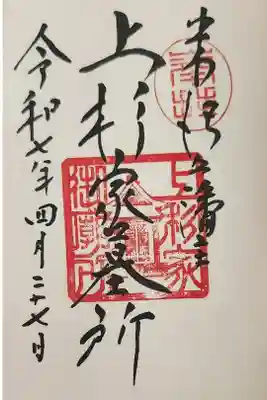 米澤藩主
上杉家墓所
令和七年四月二十七日
上杉家
御廟所